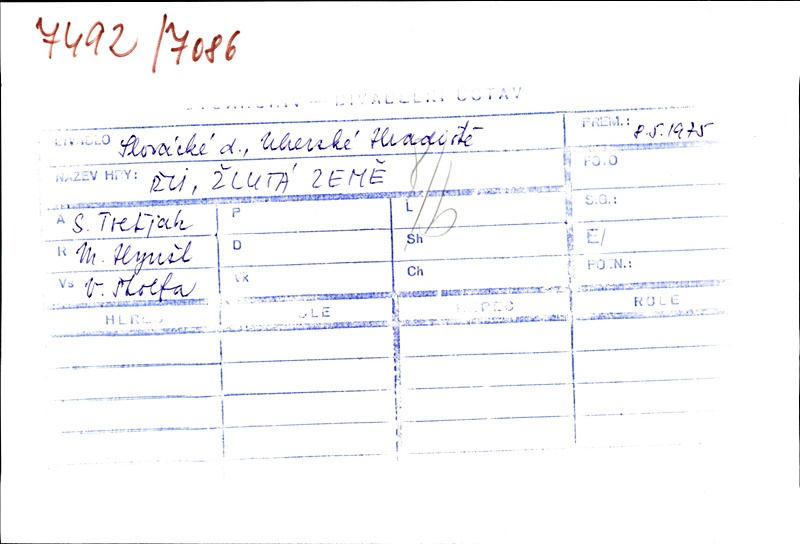 7492/7086
FOTOARCHIV — DIVADELNÍ ÚSTAV
DIVADLO Slovácké d., Uherské Hradiště PREM.: 8.5.1975
NÁZEV HRY: ŘVI, ŽLUTÁ ZEMĚ FOTO
A S. Treťjak P L S.O.:
R M. Hynšt D Sh E/
Vs V. Štolfa Vk Ch POZN.:
HEREC ROLE HEREC ROLE
č/b